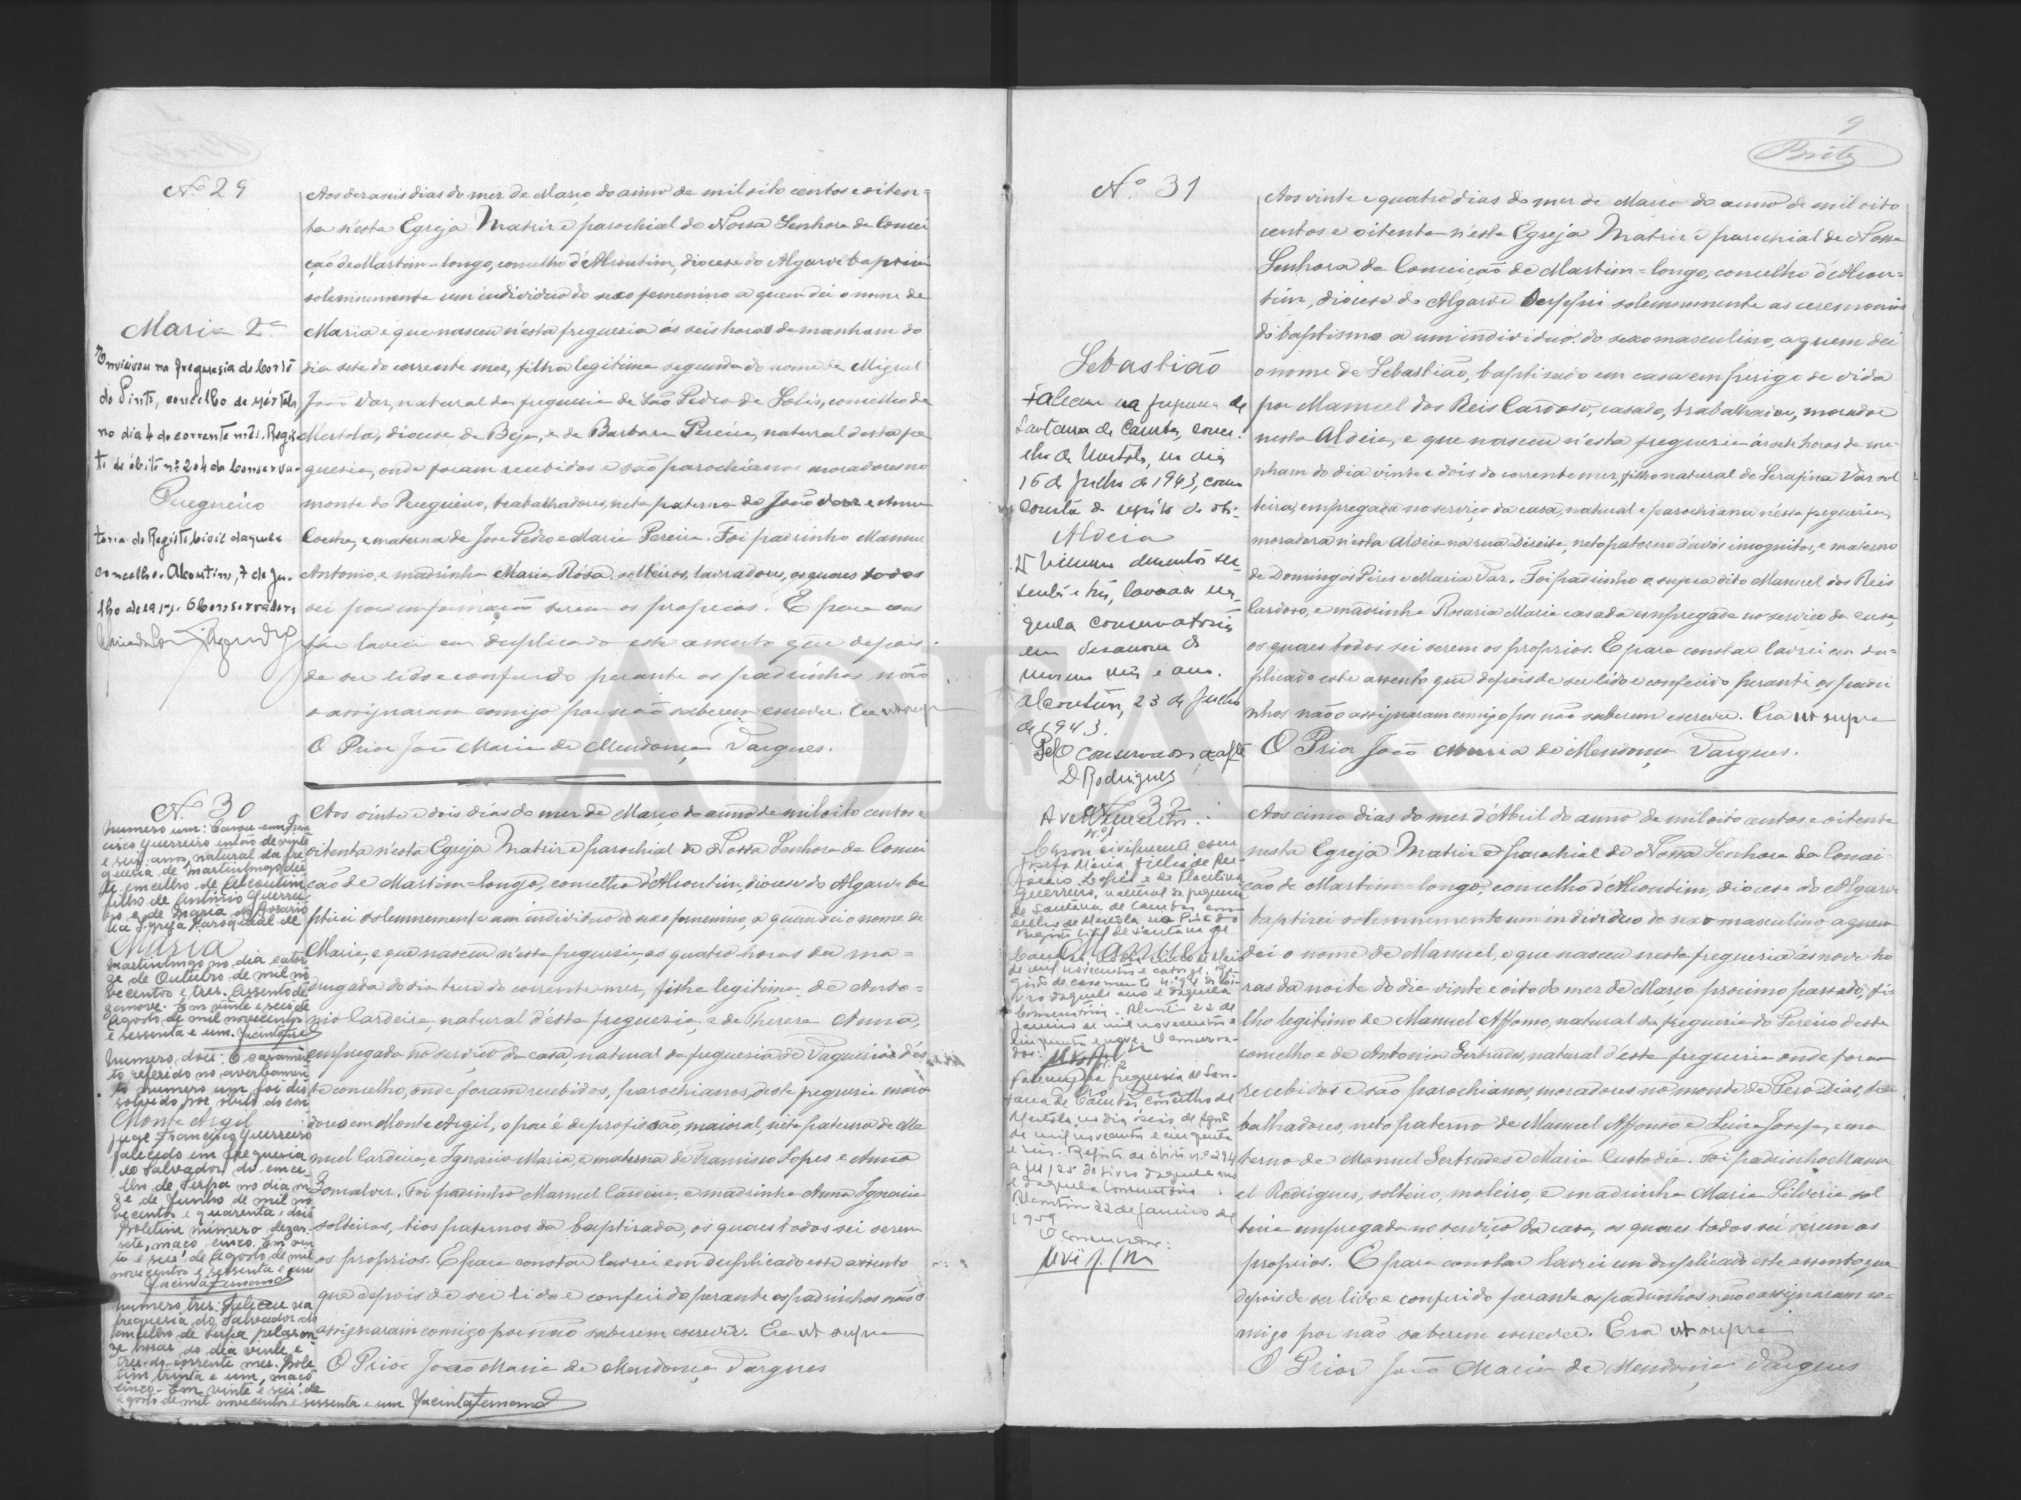 Nº 29
Aos dezaseis dias do mez de Março do anno de mil oito centos e oiten=
ta n'esta Egreja Matriz e parochial de Nossa Senhora da Concei
ção de Martim=longo, concelho d'Alcoutim, diocese do Algarve baptizei
solemnemente um individuo do sexo femenino a quem dei o nome de
Maria e que nasceu n'esta freguezia ás seis horas da manham do
dia sete do corrente mez, filha legitima segunda do nome de Miguel
João Vaz, natural da freguezia de São Pedro de Solis, concelho de
Mertola, diocese de Beja, e de Barbara Pereira, natural desta fre
guezia, onde foram recebidos e são parochianos moradores no
monte do Peregueiro, trabalhadores, neta paterna de João Vaz e Anna
Coelha, e materna de José Pedro e Maria Pereira. Foi padrinho Manuel
Antonio, e madrinha Maria Rosa, solteiros, lavradores, os quaes todos
sei por informação serem os proprios. E para cons
tar lavrei em duplicado este assento que depois
de ser lido e conferido perante os padrinhos não
o assignaram comigo por não saberem escrever. Era ut supra
O Prior João Maria de Mendonça Vargues.
Maria 2ª
Enviuvou na freguesia do Corte
do Pinto, concelho de Mértola
no dia 4 do corrente mês. Regis
to de óbito nº 204 da Conserva-
Peregueiro
toria do Registo Civil daquele
concelho. Alcoutim, 7 de Ju-
lho de O Conservador
Nº 30
Aos vinte e dois dias do mez de Março do anno de mil oito centos e
oitenta n'esta Egreja Matriz e parochial de Nossa Senhora da Concei
ção de Martim=longo, concelho d'Alcoutim, diocese do Algarve ba
ptizei solemnemente um individuo do sexo femenino, a quem dei o nome de
Maria, e que nasceu n'esta freguezia, as quatro horas da ma=
drugada do dia treze do corrente mez, filha legitima de Anto=
nio Cardeira, natural d'esta freguezia, e de Thereza Anna,
empregada no serviço da casa, natural da freguesia de Vaqueiros d'es
te concelho, onde foram recebidos, parochianos, deste freguezia mora
dores em Monte Argil, o pae é de profissão, maioral, neta paterna de Ma
nuel Cardeira, e Ignacia Maria, e materna de Francisco Lopes e Anna
Gonsalves. Foi padrinho Manuel Cardeira, e madrinha Anna Ignacia
solteiros, tios paternos da baptizada, os quaes todos sei serem
os proprios. E para constar lavrei em duplicado este assento
que depois de ser lido e conferido perante os padrinhos não o
assignaram comigo por não saberem escrever. Era ut supra
O Prior João Maria de Mendonça Vargues
Numero um: Casou com Fran
cisco Guerreiro então de vinte
e seis anos, natural da fre
guesia de Martinlongo des
te concelho de Alcoutim
filho de António Guerrei
ro e de Maria do Rosário
na Igreja Paroquial de
Maria
Martinlongo no dia cator
ze de Outubro de mil no
vecentos e três. Assento de
zanove. Em vinte e seis de
Agosto de mil novecentos
e sessenta e um. Jacinta
Numero dois: O casamen
to referido no averbamen
to numero um foi dis
solvido por óbito do con
Monte Argil
juge Francisco Guerreiro
falecido em freguesia
do Salvador do conce
lho de Serpa no dia on
ze de Junho de mil no
vecentos e quarenta e dois
Boletim numero dezas
sete, maço cinco. Em vin
te e seis de Agosto de mil
novecentos e sessenta e um
Jacinta Fernandes
Numero três: Faleceu na
freguesia do Salvador do
concelho de Serpa pelas on
ze horas do dia vinte e
três do corrente mes. Bole
tim trinta e um, maço
cinco. Em vinte e seis de
Agosto de mil novecentos e sessenta e um Jacinta Fernandes
9
Brito
Nº 31
Aos vinte e quatro dias do mez de Marco do anno de mil oito
centos e oitenta n'esta Egreja Matriz e parochial de Nossa
Senhora da Conceicão de Martim=longo, concelho d'Alcou=
tim, diocese do Algarve suppri solemnemente as ceremonias
do baptismo a um individuo do sexo masculino, a quem dei
o nome de Sebastião, baptisado em casa em perigo de vida
por Manuel dos Reis Cardoso, casado, trabalhador, morador
nesta Aldeia, e que nasceu n'esta freguezia ás sete horas da ma-
nham do dia vinte e dois do corrente mez, filho natural de Serafina Vaz sol
teira, empregada no serviço da casa, natural e parochiana nésta freguezia,
moradora n'esta Aldeia na rua Direita, neto paterno d'avós incognitos, e materno
de Domingos Pires e Maria Vaz. Foi padrinho o supra dito Manuel dos Reis
Cardoso, e madrinha Rosaria Maria casada empregada no serviço da casa,
os quaes todos sei serem os proprios. E para constar lavrei em du=
plicado este assento que depois de ser lido e conferido perante os padri
nhos não o assignaram comigo por não saberem escrever. Era ut supra
O Prior João Maria de Mendonça Vargues.
Sebastião
Faleceu na freguesia de
Santana de Cambas, conce-
lho de Mertola, no dia
16 de Julho de 1943, como
consta do registo de óbi-
Aldeia
to numero duzentos ses-
senta e três, lavrado na-
quela conservatória
em dezanove do
mesmo mês e ano.
Alcoutim, 23 de Julho
de 1943.
Pelo Conservador,
D Rodrigues
Nº 32
Aos cinco dias do mez d'Abril do anno de mil oito centos e oitenta
nesta Egreja Matriz e parochial de Nossa Senhora da Concei
ção de Martim=longo, concelho d'Alcoutim, diocese do Algarve
baptizei solemnemente um individuo do sexo masculino a quem
dei o nome de Manuel, e que nasceu nesta freguezia ás nove ho
ras da noite do dia vinte e oito do mez de Março proximo passado, fi
lho legitimo de Manuel Affonso, natural da freguezia do Pereiro deste
concelho e de Antonia Gertrudes, natural d'esta freguezia onde foram
recebidos e são parochianos, moradores no monte de Pero Dias, tra
balhadores, neto paterno de Manuel Affonso e Luiza Josefa, e ma
terno de Manuel Gertrudes e Maria Custodia. Foi padrinho Manu
el Rodrigues, solteiro, moleiro, e madrinha Maria Silveria sol
teira empregada no serviço da casa, os quaes todos sei serem os
proprios. E para constar lavrei em duplicado este assento que
depois de ser lido e conferido perante os padrinhos não o assignaram co=
migo por não saberem escrever. Era ut supra
O Prior João Maria de Mendonça Vargues
Averbamentos:
Nº 1
Casou civilmente com
Josefa Maria, filha de
Lopes e de
Guerreiro, natural da freguesia
de Santana de Cambas, conce
lho de Mertola no Posto do
Registo Civil de Santana de
Manuel
de mil novecentos e catorze.
Alcoutim 22 de
Janeiro de mil novecentos e
cinquenta e nove. O Conserva-
dor:
Faleceu na freguesia de San-
tana de Cambas, concelho de
Mertola, no dia seis de
de mil novecentos e cinquenta
e seis. Registo de óbito nº 294
Alcoutim 22 de Janeiro de
1959
O Conservador:
ADFAR